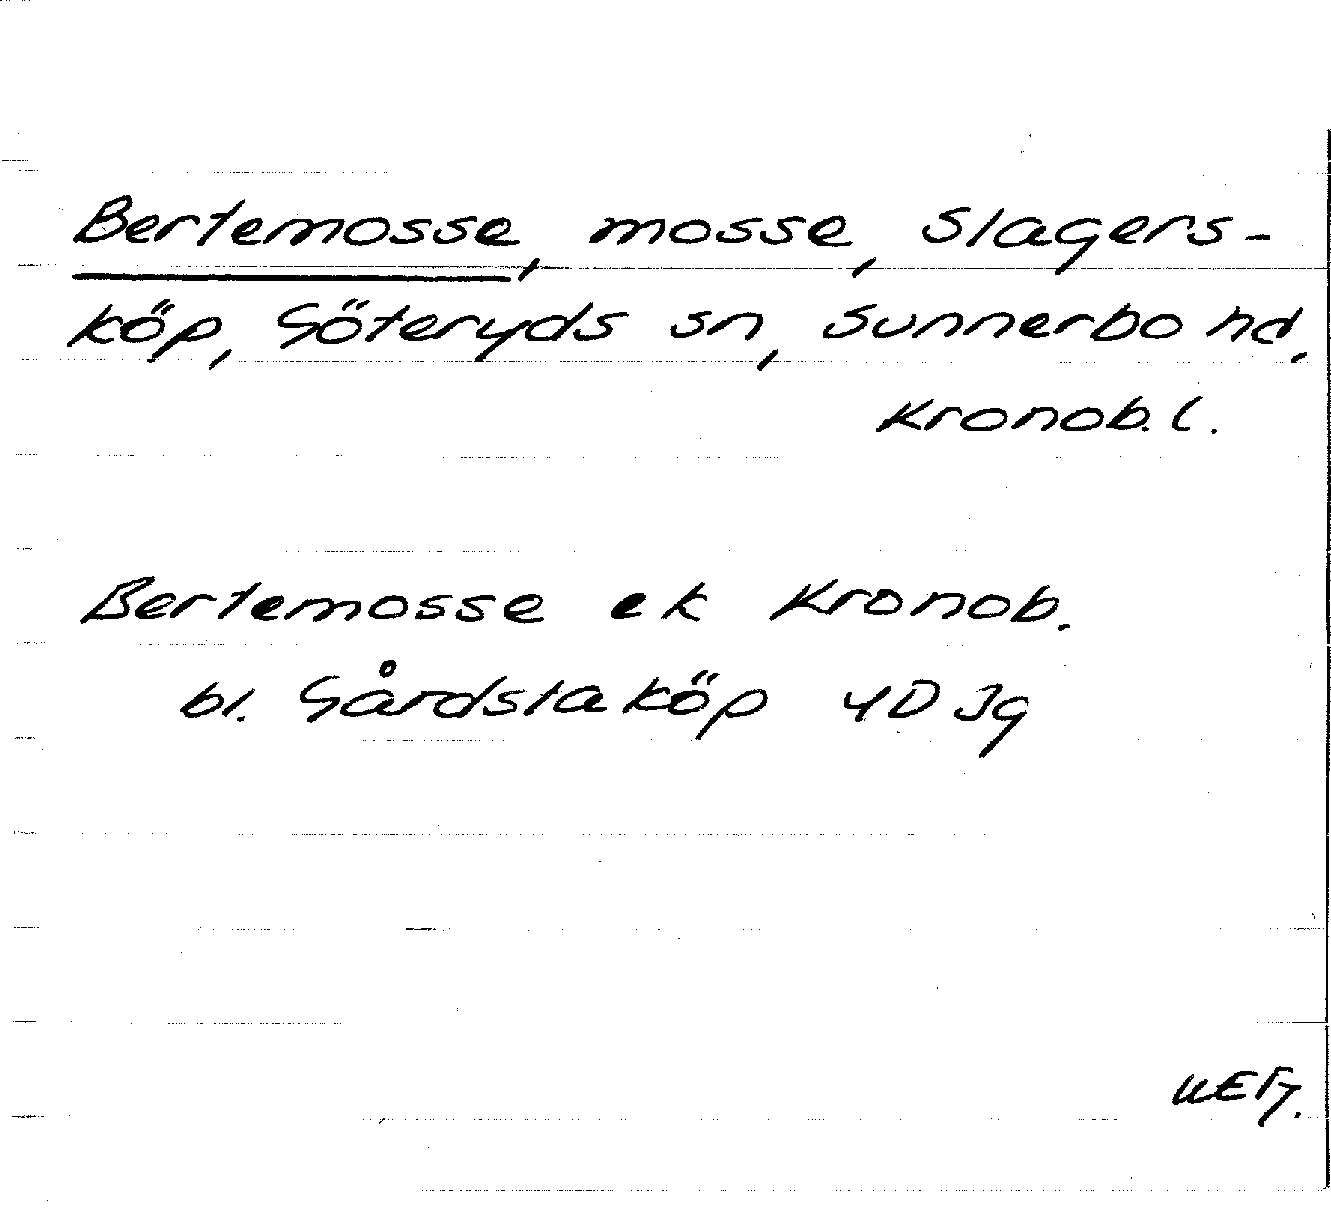 Bertemosse, mosse, Slagers-
köp, Göteryds sn, Sunnerbo hd,
Kronob. l.
Bertemosse ek Kronob.
bl. Gårdstaköp 4D Jg